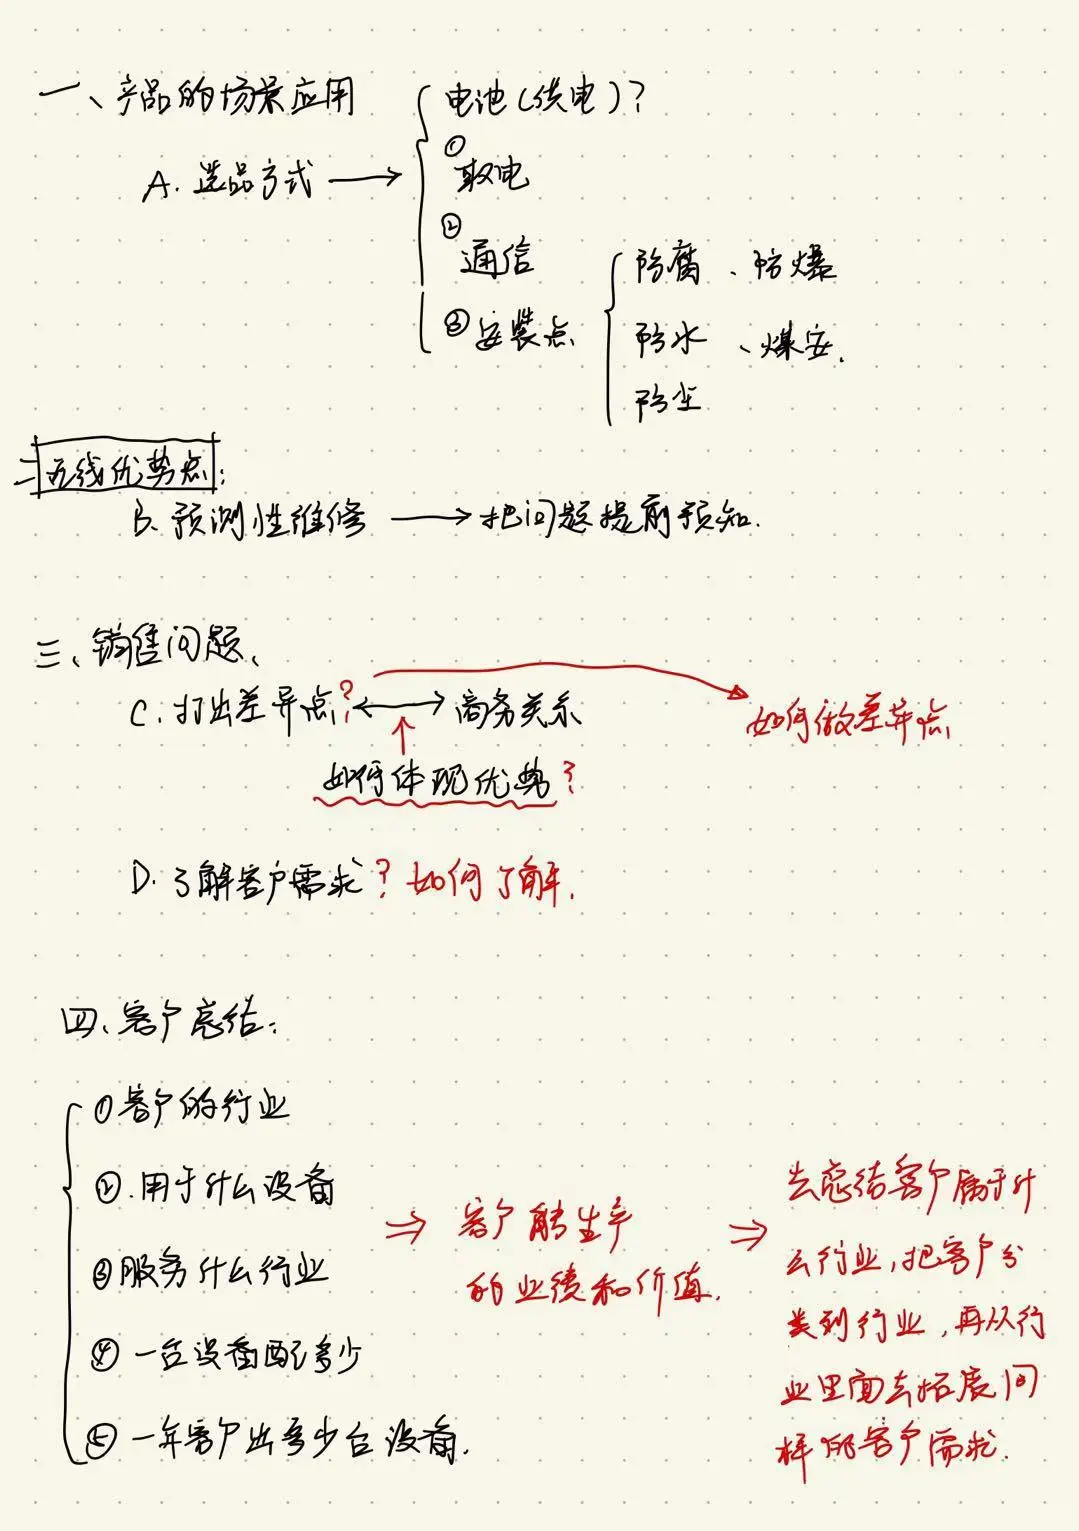 一、产品的场景应用
A. 选品方式 → 电池(供电)?
① 取电
② 通信
③ 安装点
防腐、防爆
防水、煤安.
防尘
二 无线优势点:
B. 预测性维修 → 把问题提前预知.
三、销售问题、
C. 打出差异点? ↔ 商务关系
如何做差异点
↑
如何体现优势?
D. 了解客户需求? 如何了解.
四、客户总结:
①客户的行业
②.用于什么设备
③服务什么行业
④一台设备配多少
⑤一年客户出多少台设备.
⇒ 客户能生产
的业绩和价值.
⇒ 去总结客户属于什
么行业,把客户分
类到行业,再从行
业里面去拓展同
样的客户需求.